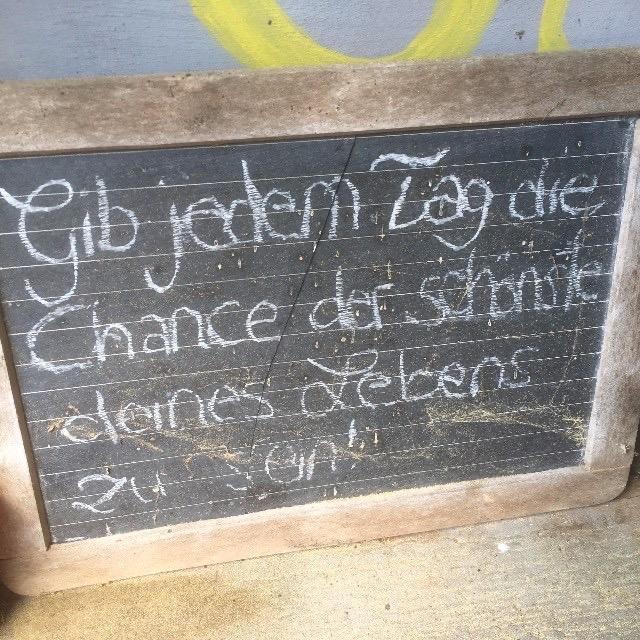 Gib jedem Tag die
Chance der schönste
deines Lebens
zu sein!